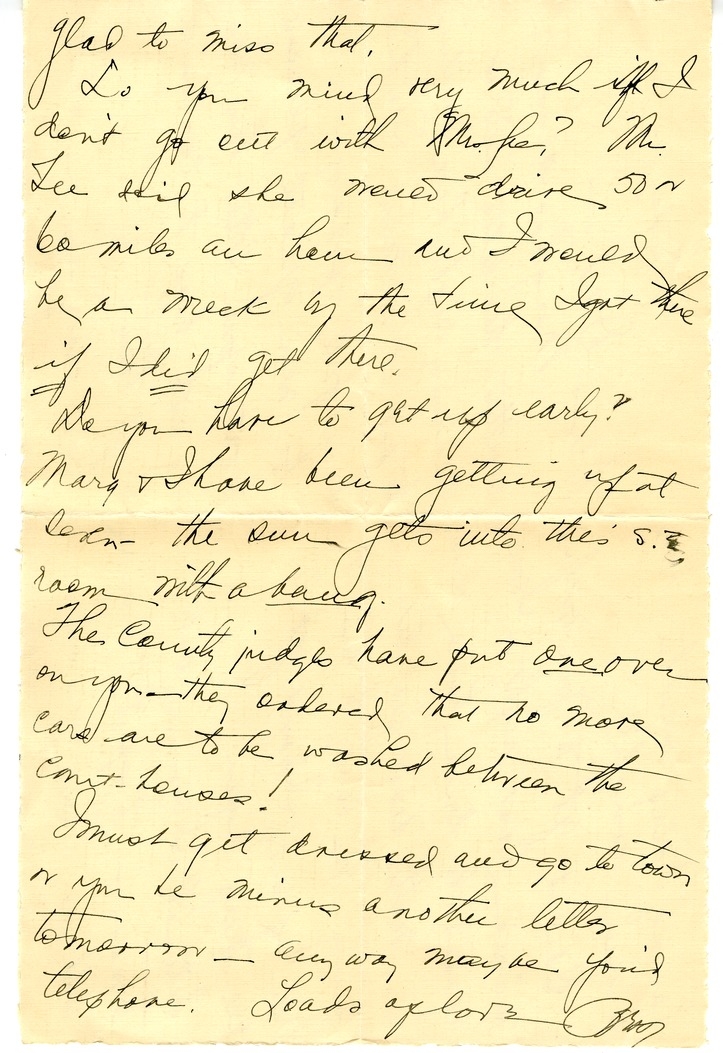 glad to miss that.
Do you mind very much if I
don't go out with Mrs. Lee? Mr.
Lee said she would drive 50 or
60 miles an hour and I would
be a wreck by the time I got there
if I did get there.
Do you have to get up early?
Mary & I have been getting up at
seven - the sun gets into this S.E.
room with a bang.
The County judges have put one over
on you - they ordered that no more
cars are to be washed between the
court-houses!
I must get dressed and go to town
or you be minus another letter
tomorrow - anyway maybe you'd
telephone. Loads of love